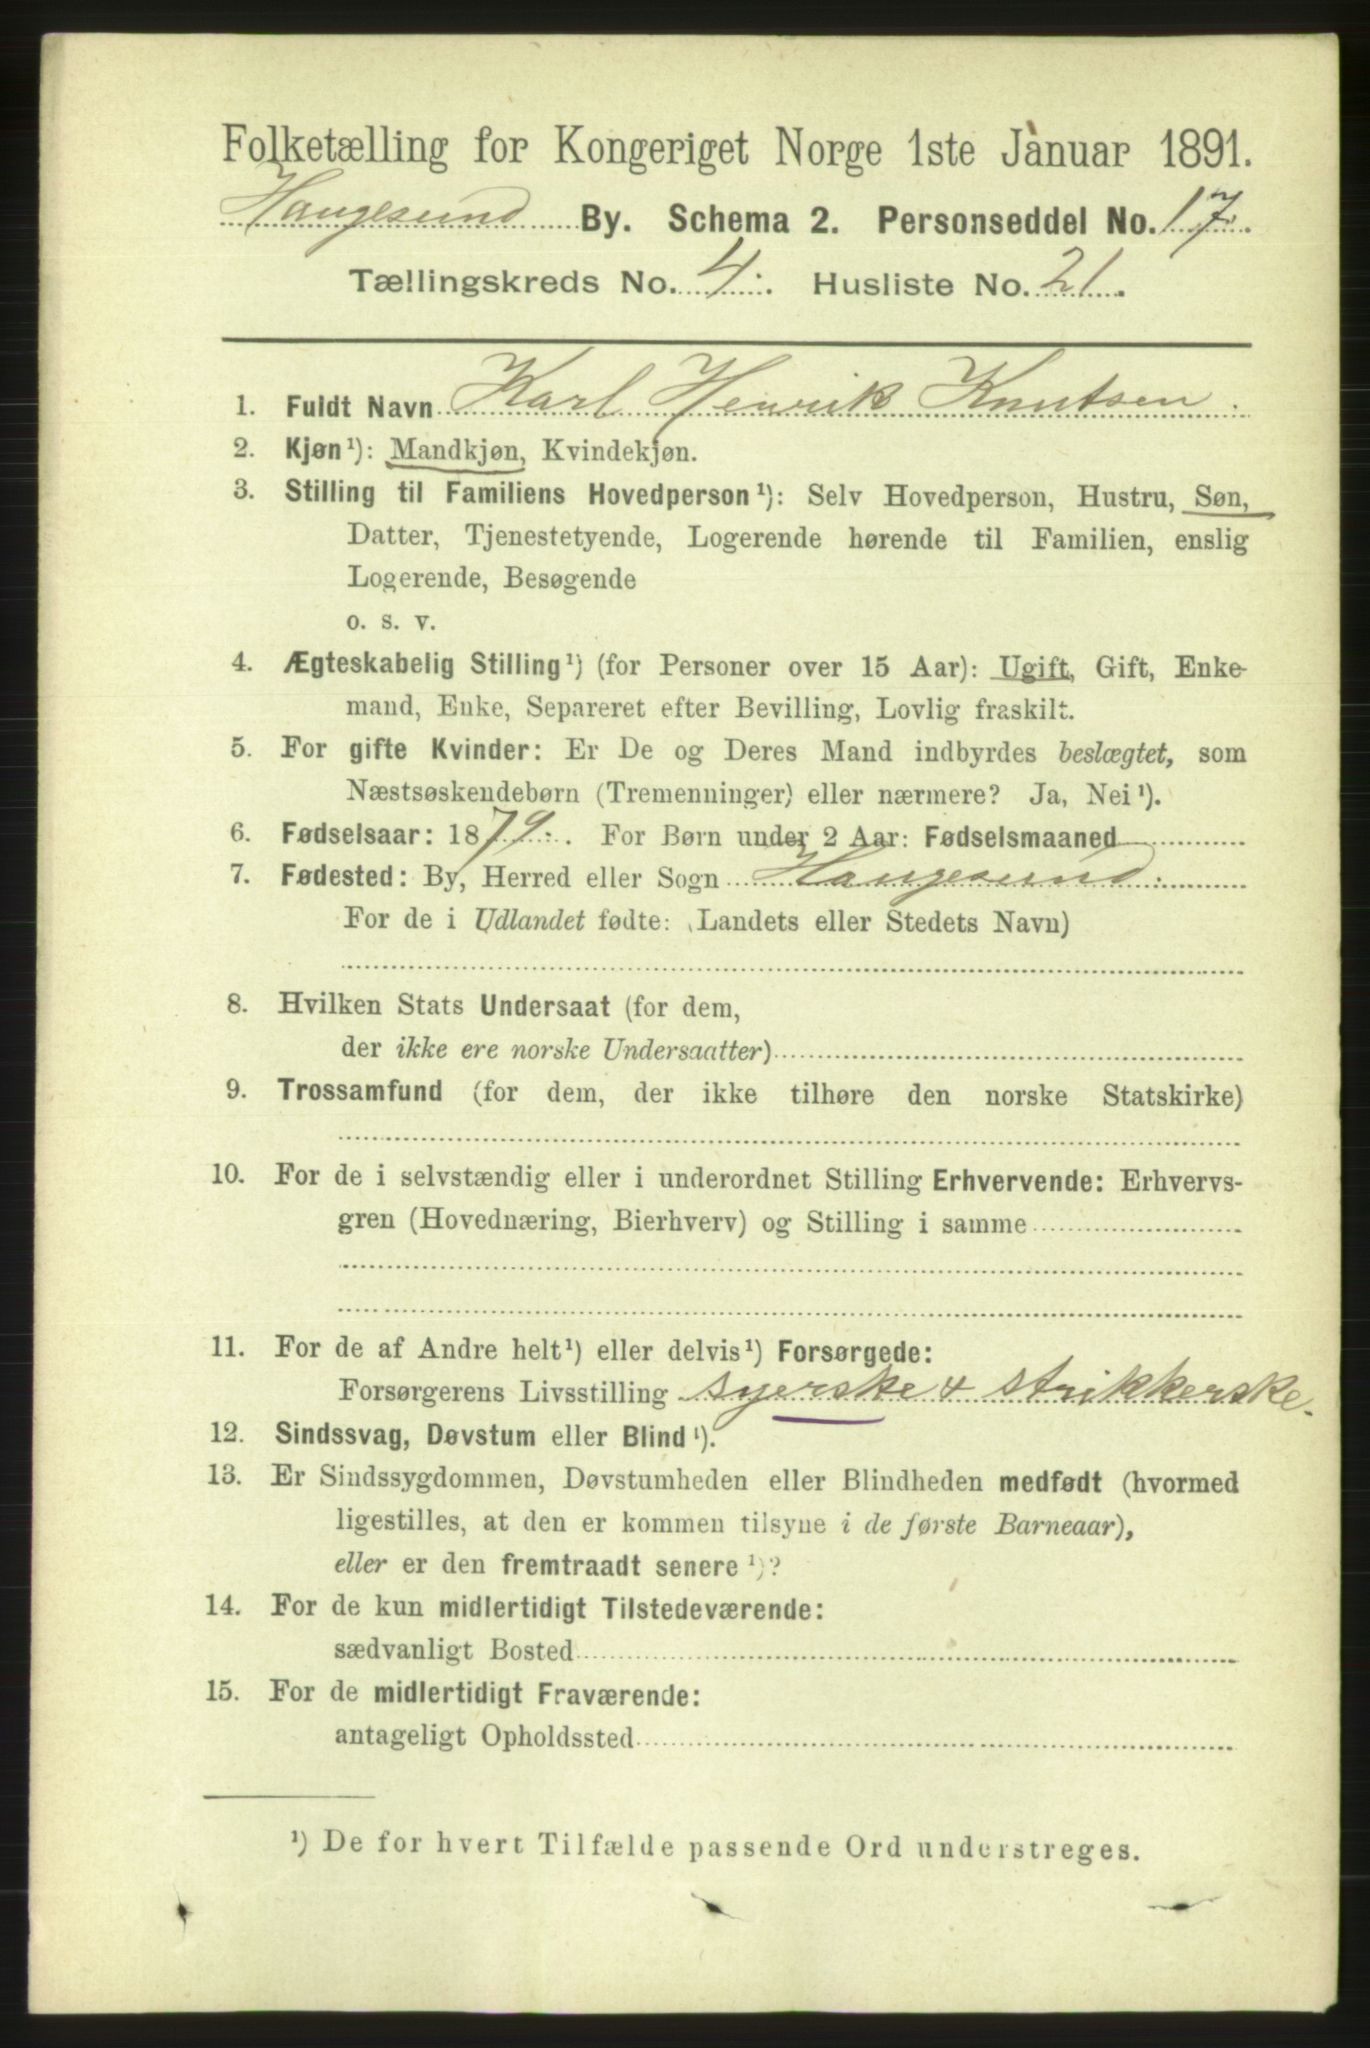 Folketælling for Kongeriget Norge 1ste Januar 1891.
Haugesund By. Schema 2. Personseddel No. 17.
Tællingskreds No. 4. Husliste No. 21.
1. Fuldt Navn Karl Henrik Knutsen.
2. Kjøn¹): Mandkjøn, Kvindekjøn.
3. Stilling til Familiens Hovedperson¹): Selv Hovedperson, Hustru, Søn,
Datter, Tjenestetyende, Logerende hørende til Familien, enslig
Logerende, Besøgende
o. s. v.
4. Ægteskabelig Stilling¹) (for Personer over 15 Aar): Ugift, Gift, Enke-
mand, Enke, Separeret efter Bevilling, Lovlig fraskilt.
5. For gifte Kvinder: Er De og Deres Mand indbyrdes beslægtet, som
Næstsøskendebørn (Tremenninger) eller nærmere? Ja, Nei¹).
6. Fødselsaar: 1879. For Børn under 2 Aar: Fødselsmaaned
7. Fødested: By, Herred eller Sogn Haugesund.
For de i Udlandet fødte: (Landets eller Stedets Navn)
8. Hvilken Stats Undersaat (for dem,
der ikke ere norske Undersaatter)
9. Trossamfund (for dem, der ikke tilhøre den norske Statskirke)
10. For de i selvstændig eller i underordnet Stilling Erhvervende: Erhvervs-
gren (Hovednæring, Bierhverv) og Stilling i samme
11. For de af Andre helt¹) eller delvis¹) Forsørgede:
Forsørgerens Livsstilling syerske & strikkerske.
12. Sindssvag, Døvstum eller Blind¹).
13. Er Sindssygdommen, Døvstumheden eller Blindheden medfødt (hvormed
ligestilles, at den er kommen tilsyne i de første Barneaar),
eller er den fremtraadt senere¹)?
14. For de kun midlertidigt Tilstedeværende:
sædvanligt Bosted
15. For de midlertidigt Fraværende:
antageligt Opholdssted
¹) De for hvert Tilfælde passende Ord understreges.